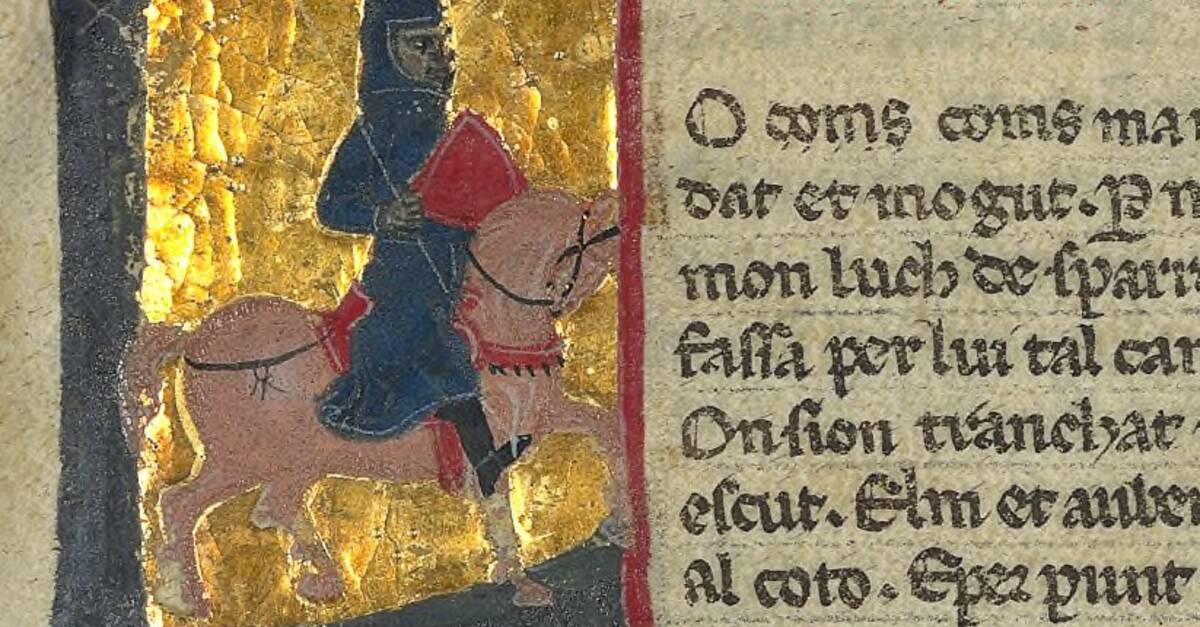 O coms coms ma
dat et mogut. P
mon luch de sparr
fassa per lui tal can
On sion tranchat
escut. Elm et auber
Al coto. E per punt